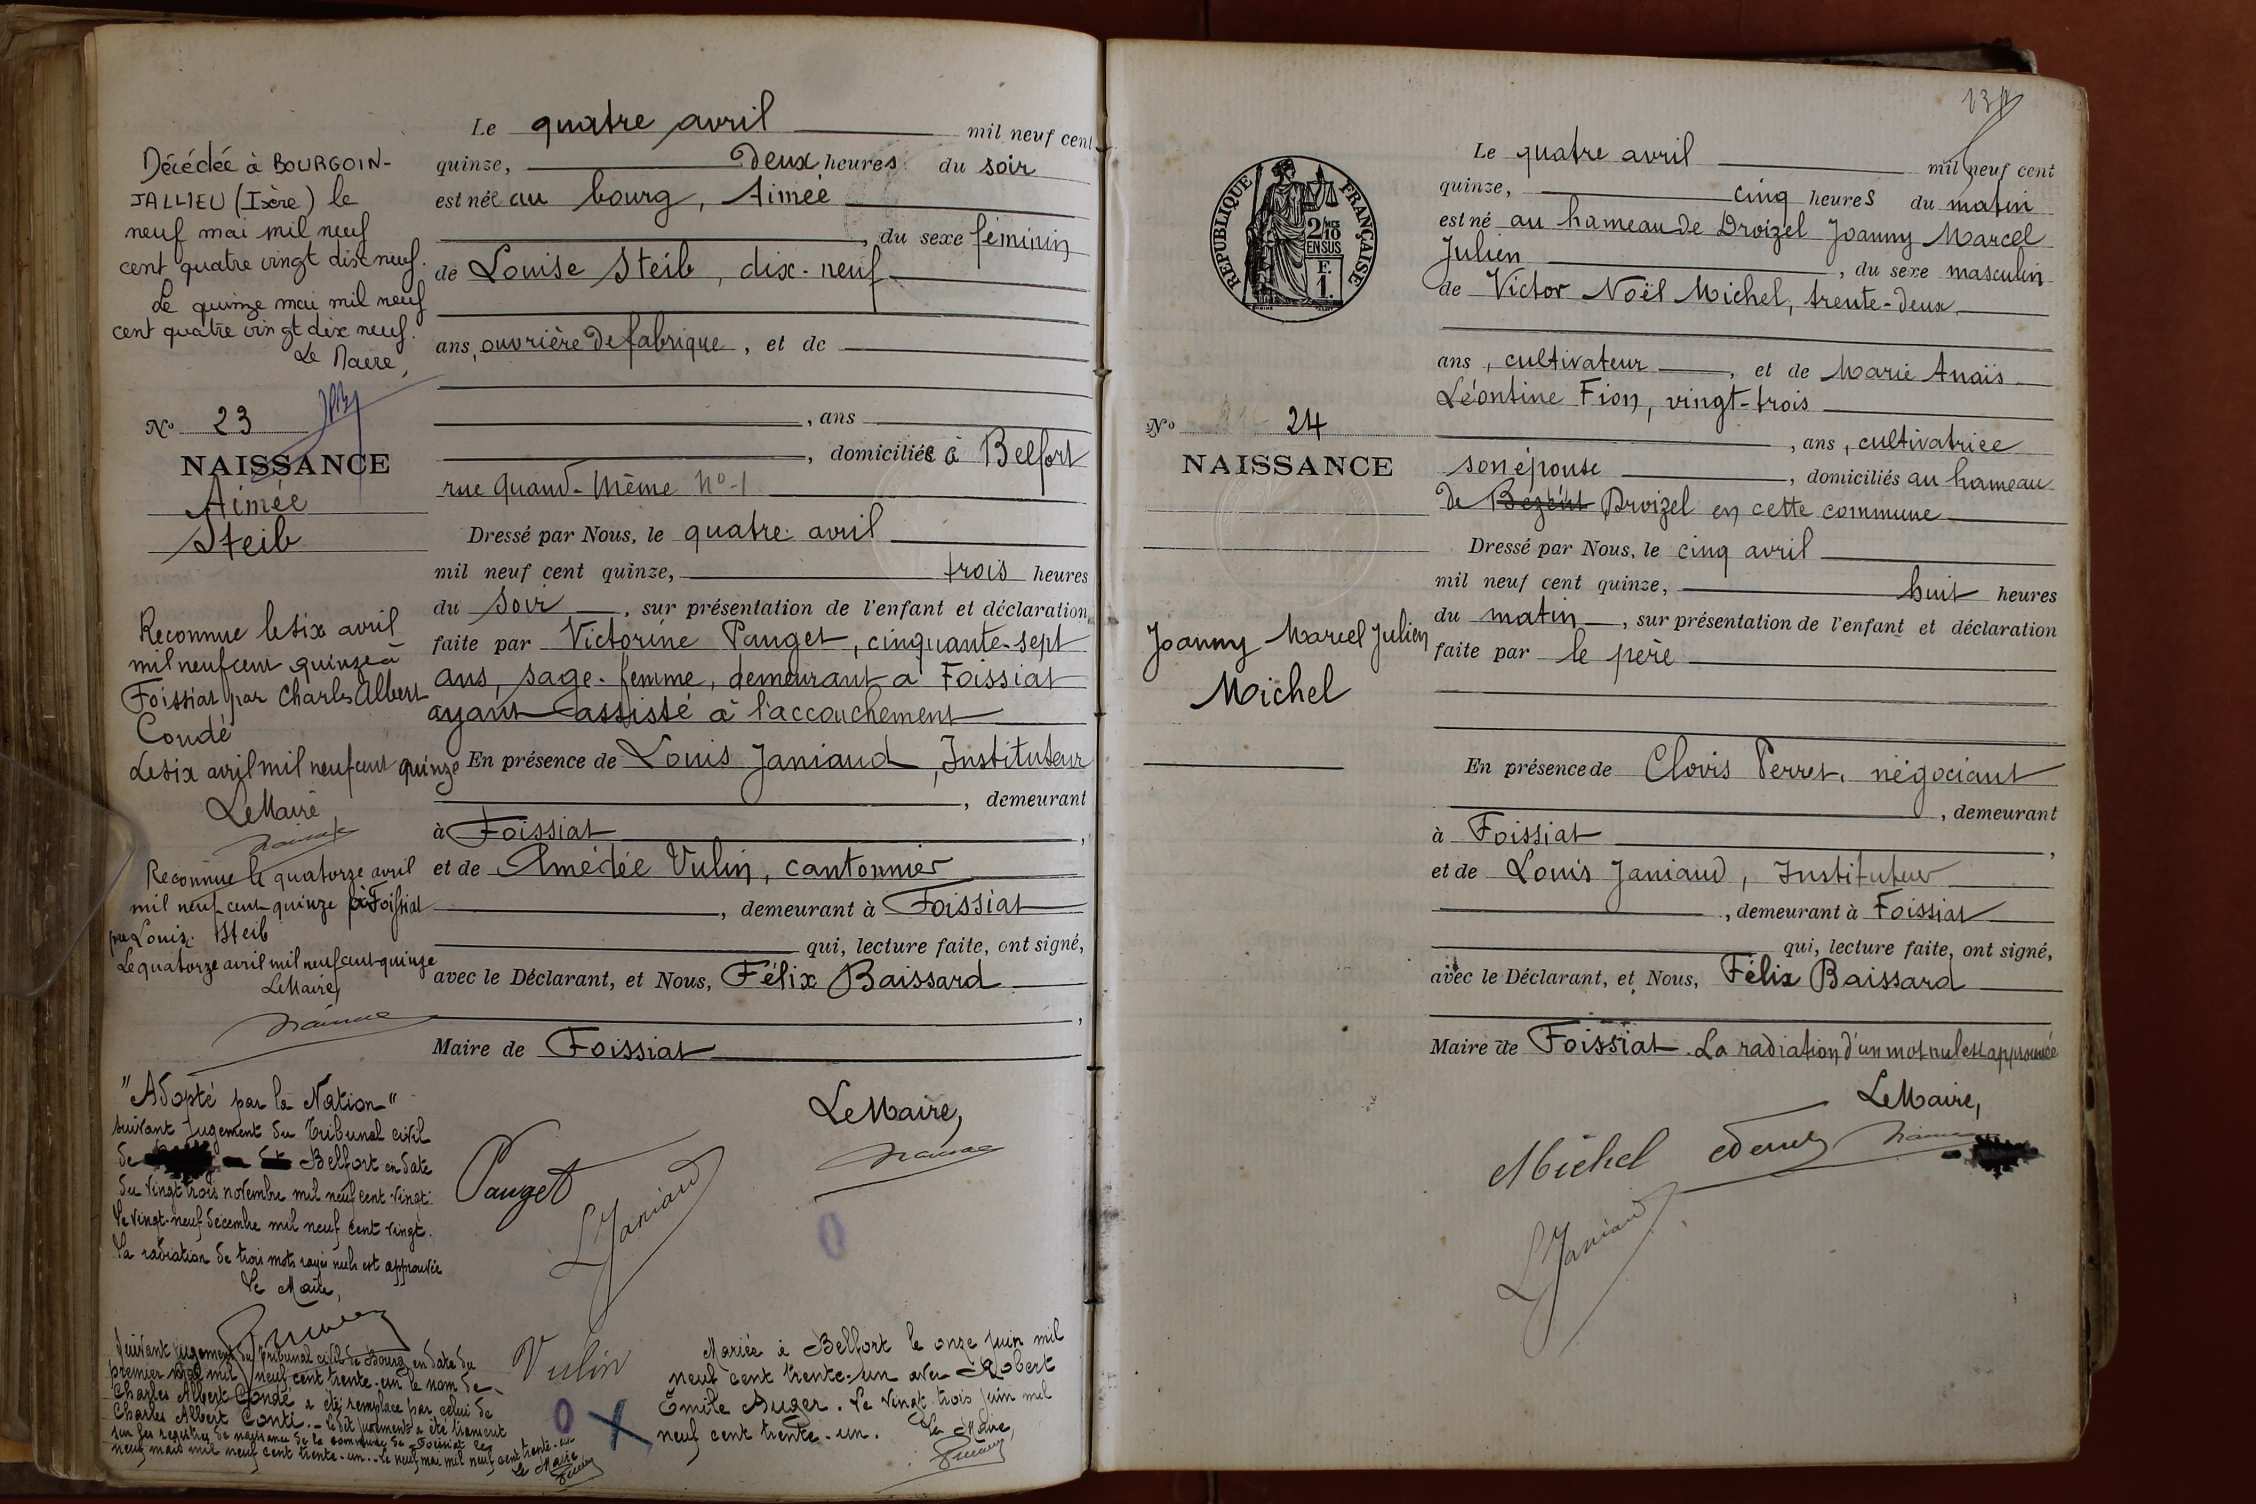 Décédée à BOURGOIN-
JALLIEU (Isère) le
neuf mai mil neuf
cent quatre vingt dix neuf.
Le quinze mai mil neuf
cent quatre vingt dix neuf.
Le Maire,
No 23
NAISSANCE
Aimée
Steib
Reconnue le six avril
mil neuf cent quinze à
Foissiat par Charles Albert
Condé
Le six avril mil neuf cent quinze
Le Maire
Reconnue le quatorze avril
mil neuf cent quinze à Foissiat
par Louise Steib
Le quatorze avril mil neuf cent quinze
Le Maire,
"Adopté par la Nation"
suivant jugement du Tribunal civil
de Belfort en date
du vingt trois novembre mil neuf cent vingt.
Le vingt-neuf décembre mil neuf cent vingt.
La radiation de trois mots rayés nuls est approuvée
Le Maire,
Suivant jugement du Tribunal civil de Bourg en date du
premier mil neuf cent trente-un le nom de
Charles Albert Condé a été remplacé par celui de
Charles Albert Conti. - Le dit jugement a été transcrit
sur les registres de naissance de la commune de Foissiat le
neuf mars mil neuf cent trente-un. - Le neuf mai mil neuf cent trente-un
Le Maire
Le quatre avril mil neuf cent
quinze, Deux heures du soir
est née au bourg, Aimée
, du sexe féminin
de Louise Steib, dix-neuf
ans, ouvrière de fabrique, et de
, ans
, domiciliée à Belfort
rue Quand-Même No 1
Dressé par Nous, le quatre avril
mil neuf cent quinze, trois heures
du soir, sur présentation de l'enfant et déclaration
faite par Victorine Pauget, cinquante-sept
ans, sage-femme, demeurant à Foissiat
ayant assisté à l'accouchement
En présence de Louis Janiaud, Instituteur
, demeurant
à Foissiat,
et de Amédée Vulin, cantonnier
, demeurant à Foissiat
qui, lecture faite, ont signé,
avec le Déclarant, et Nous, Félix Baissard
,
Maire de Foissiat
Le Maire,
Pauget
L Janiaud
0
Vulin
0 X
Mariée à Belfort le onze juin mil
neuf cent trente-un avec Robert
Emile Auger. Le vingt trois juin mil
neuf cent trente-un. Le Maire,
RÉPUBLIQUE FRANÇAISE
2/10
EN SUS
F.
1.
No 24
NAISSANCE
Joanny Marcel Julien
Michel
Le quatre avril mil neuf cent
quinze, cinq heures du matin
est né au hameau de Droizel Joanny Marcel
Julien, du sexe masculin
de Victor Noël Michel, trente-deux
ans, cultivateur, et de Marie Anaïs
Léontine Fion, vingt-trois
, ans, cultivatrice
son épouse, domiciliés au hameau
de Droizel en cette commune
Dressé par Nous, le cinq avril
mil neuf cent quinze, huit heures
du matin, sur présentation de l'enfant et déclaration
faite par le père
En présence de Clovis Perret, négociant
, demeurant
à Foissiat,
et de Louis Janiaud, Instituteur
, demeurant à Foissiat
qui, lecture faite, ont signé,
avec le Déclarant, et Nous, Félix Baissard
Maire de Foissiat. La radiation d'un mot nul est approuvée
Le Maire,
Michel
L Janiaud